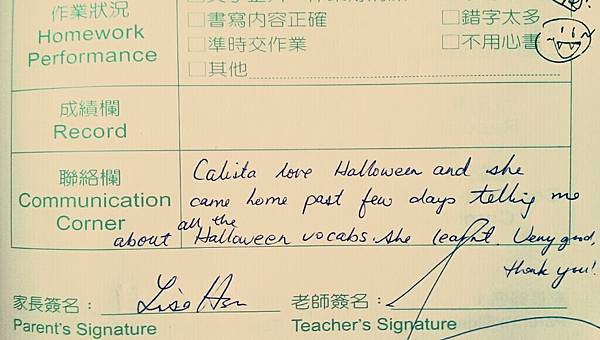 作業狀況
Homework
Performance
□書寫內容正確
□錯字太多
□準時交作業
□不用心書
□其他
成績欄
Record
聯絡欄
Communication
Corner
Calista love Halloween and she
came home past few days telling me
about all the Halloween vocabs she learnt. Very good,
thank you!
家長簽名：
Parent's Signature
老師簽名：
Teacher's Signature